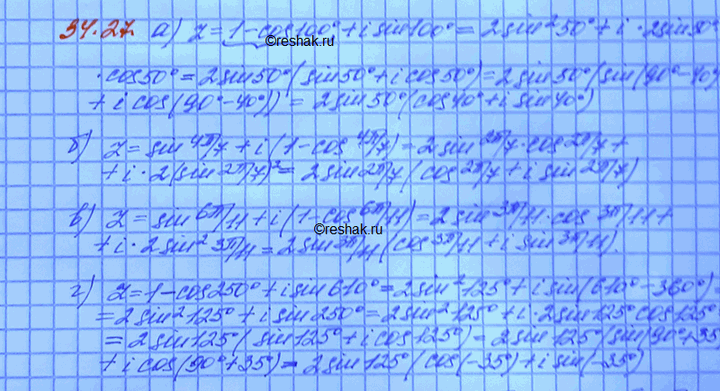 34.27. а) z = 1-cos100° + i sin100° = 2sin²50° + i·2sin50°
©reshak.ru
·cos50° = 2sin50°(sin50° + i cos50°) = 2sin50°(sin(90°-40°)
+ i cos(90°-40°)) = 2sin50°(cos40° + i sin40°)
б) z = sin 4π/7 + i(1-cos 4π/7) = 2sin 2π/7 · cos 2π/7 +
+ i·2(sin 2π/7)² = 2sin 2π/7 (cos 2π/7 + i sin 2π/7)
в) z = sin 6π/11 + i(1-cos 6π/11) = 2sin 3π/11 · cos 3π/11 +
©reshak.ru
+ i·2sin² 3π/11 = 2sin 3π/11 (cos 3π/11 + i sin 3π/11).
г) z = 1-cos250° + i sin610° = 2sin²125° + i sin(610°-360°)
= 2sin²125° + i sin250° = 2sin²125° + i·2sin125°cos125°
= 2sin125°(sin125° + i cos125°) = 2sin125°(sin(90°+35°
+ i cos(90°+35°) = 2sin125°(cos(-35°) + i sin(-35°)